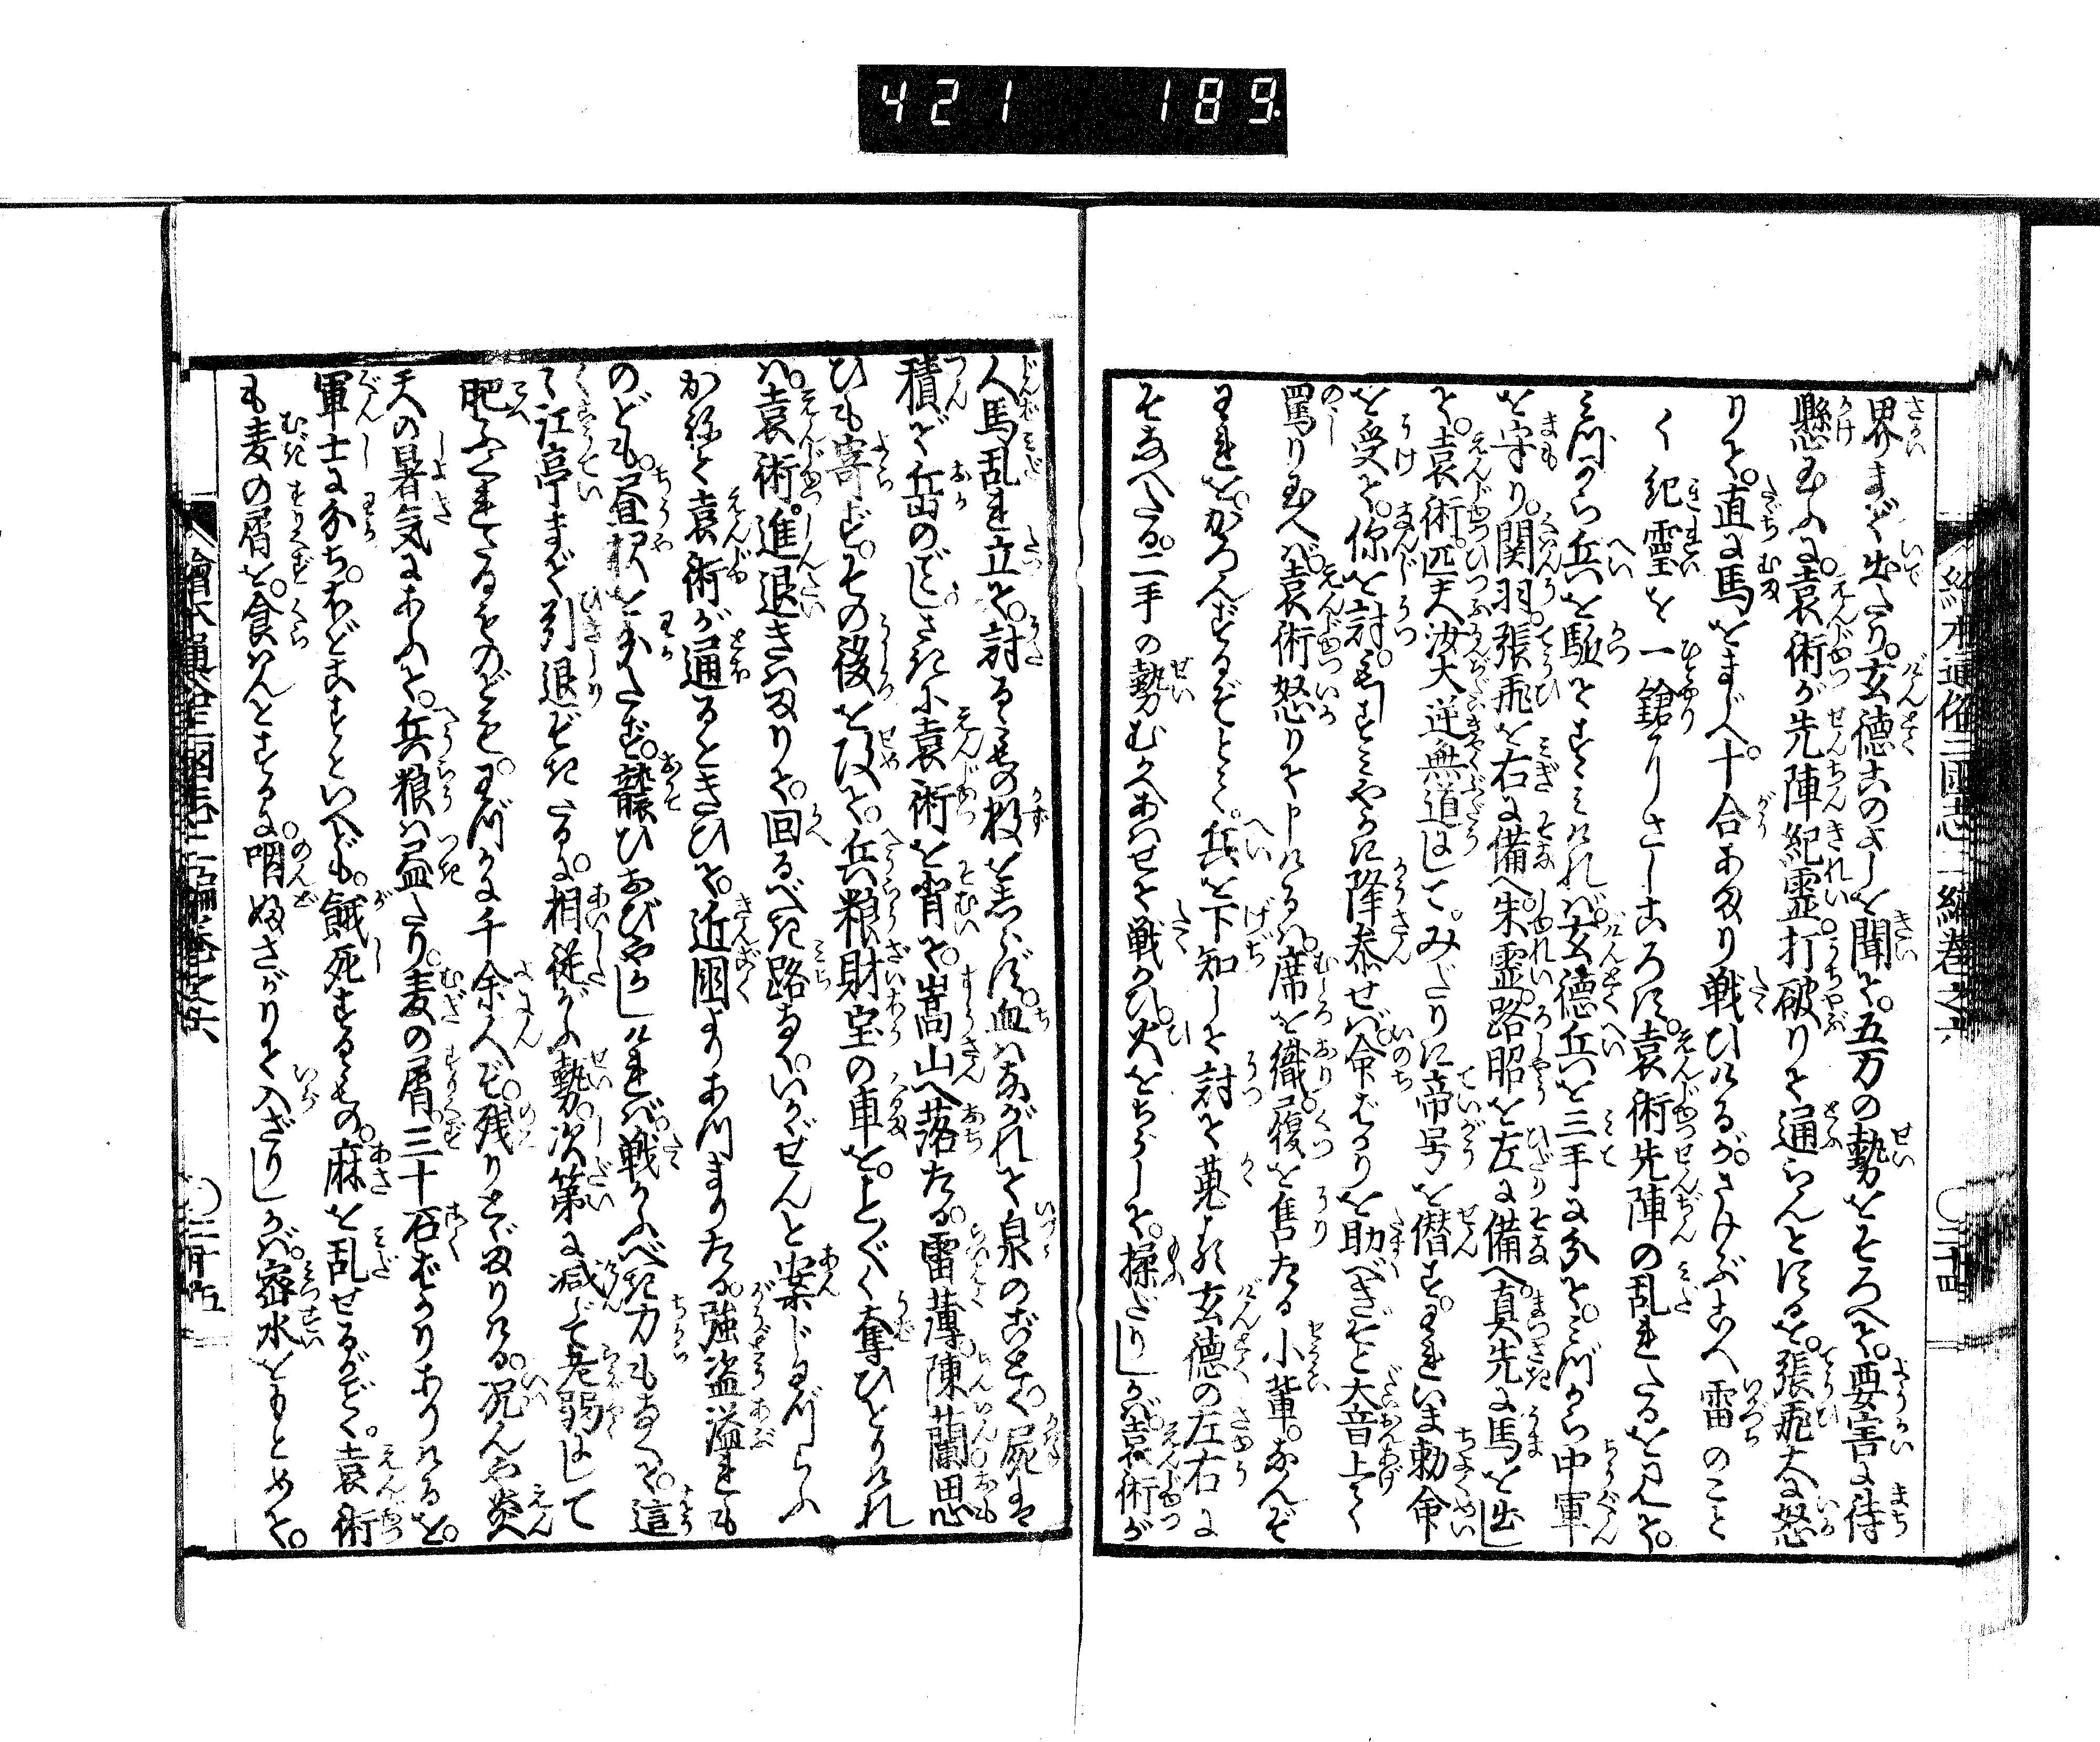 421 189
絵本通俗三国志二編巻之六 〇二十四
界まで出たり。玄徳このよしを聞て。五万の勢をそろへて。要害に待
懸玉ふに。袁術が先陣紀霊。打破りて通らんとするを。張飛大に怒
りて。直に馬をまじへ。十合あまり戦ひけるが。さけぶこへ雷のごと
く紀霊を一鎗にさしころす。袁術先陣の乱れたるを見て。
みづから兵を駈てすゝみければ。玄徳兵を三手に分て。みづから中軍
を守り。関羽。張飛を右に備へ。朱霊。路昭を左に備へ。真先に馬を出し
て。袁術匹夫汝大逆無道にして。みだりに帝号を僭す。われいま勅命
を受て。你を討。すみやかに降参せば。命ばかりを助べきぞと大音上て
罵り玉へば。袁術怒りて申けるは。席を織。履を售たる小輩。なんぞ
われをかろんずるぞとて。兵を下知して討て蒐れば玄徳の左右に
そなへたる。二手の勢むかへあはせて戦かひ。火をちらして。操だりしが。袁術が
人馬乱れ立て。討るゝもの数を志らず。血はながれて泉のごとく。屍は
積で岳のごとし。さきに袁術を背て。嵩山へ落たる。雷薄。陳蘭思
ひも寄ず。その後を攻て。兵粮財宝の車を。ことごとく奪ひとりけれ
ば。袁術。進退きはまりて。回るべき路なく。いかゞせんと案じわづらふ
のども。昼夜をわかたず。襲ひおびやかしければ。戦かふべき力もなくて。這
かねて袁術が通るときひて。近国よりあつまりたる。強盗溢れも
々江亭まで引退ぞきたるに。相従がふ勢。次第に減じて老弱にして
肥ふくれたるものども。わづかに千余人ぞ。残りとゞまりける。況んや炎
天の暑気にあふて。兵粮は尽たり。麦の屑。三十石ばかりありけるを。
軍士に分ち。ほどこすといへども。餓死するもの。麻を乱せるがごとく。袁術
も麦の屑を。食はんとするに。咽ふさがりて入ざりしかば。密水をもとめて。
絵本通俗三国志二編巻之六 〇二十五